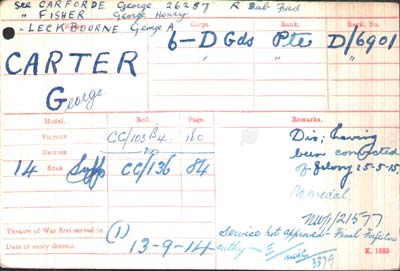 see CARFORDE George 26287 R Dub Fus
" FISHER George Henry
" LECKBOURNE George A
Corps. Rank. Regtl. No.
6-D Gds Pte D/6901
" "
CARTER
George
Medal. Roll. Page. Remarks.
VICTORY CC/103B4. 160
BRITISH do
14 STAR Supp CC/136 84
Dis; having
been convicted
of felony 25-5-15.
No medal.
NW/1/21577
Theatre of War first served in (1)
Service not approved - Final Forfeiture
Date of entry therein 13-9-14
authy - E/misc 3379
K. 1380